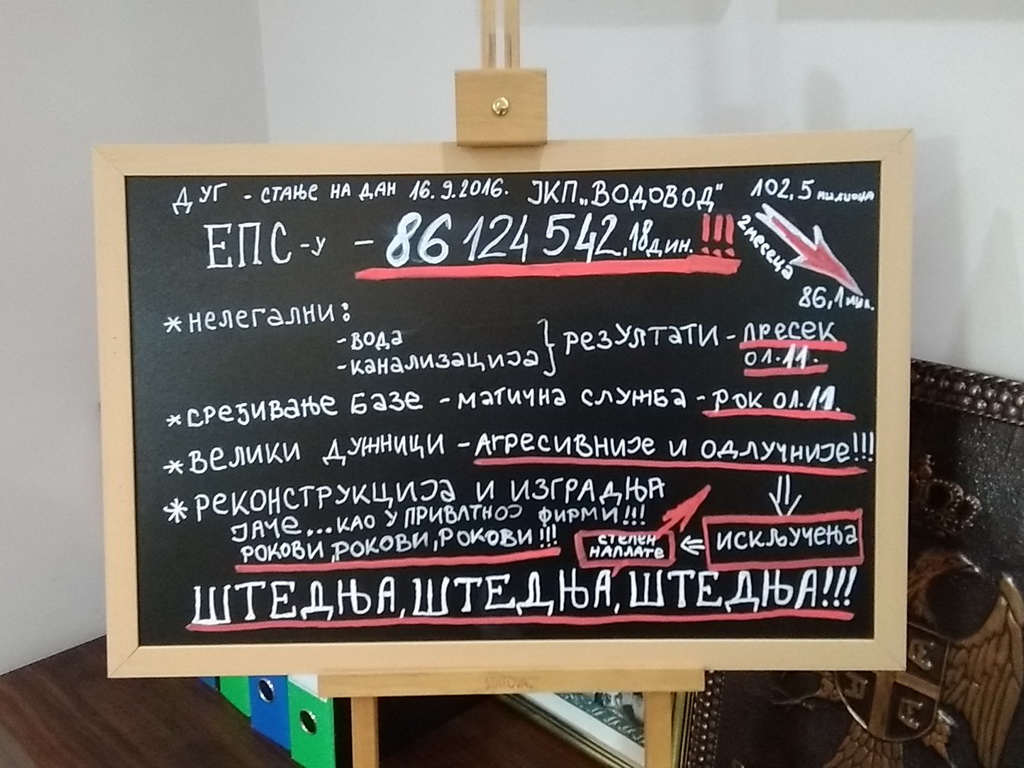 ДУГ - СТАЊЕ НА ДАН 16.9.2016. ЈКП „ВОДОВОД"
102,5 милиона
ЕПС-у - 86 124 542,18 дин. !!!
2 месеца
86,1 мил.
* НЕЛЕГАЛНИ:
- ВОДА
- КАНАЛИЗАЦИЈА
РЕЗУЛТАТИ - ПРЕСЕК
01.11.
* СРЕЂИВАЊЕ БАЗЕ - МАТИЧНА СЛУЖБА - РОК 01.11.
* ВЕЛИКИ ДУЖНИЦИ - АГРЕСИВНИЈЕ И ОДЛУЧНИЈЕ!!!
* РЕКОНСТРУКЦИЈА И ИЗГРАДЊА
ЈАЧЕ... КАО У ПРИВАТНОЈ ФИРМИ!!!
РОКОВИ, РОКОВИ, РОКОВИ!!!
ИСКЉУЧЕЊА
СТЕПЕН
НАПЛАТЕ
ШТЕДЊА, ШТЕДЊА, ШТЕДЊА!!!